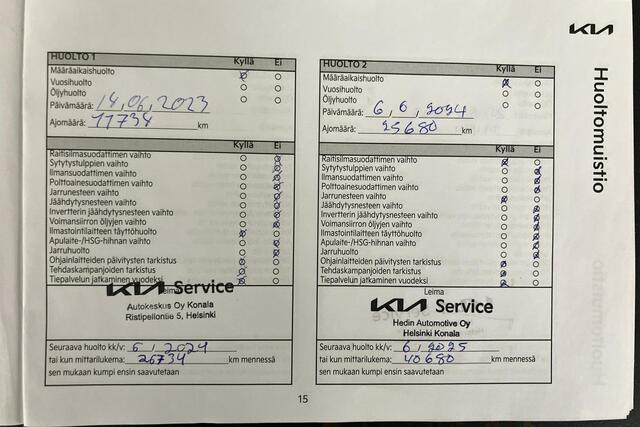 KIA
Huoltomuistio
HUOLTO 1
Kyllä Ei
Määräaikaishuolto
Vuosihuolto
Öljyhuolto
Päivämäärä: 14,06,2023
Ajomäärä: 11734 km
Kyllä Ei
Raitisilmasuodattimen vaihto
Sytytystulppien vaihto
Ilmansuodattimen vaihto
Polttoainesuodattimen vaihto
Jarrunesteen vaihto
Jäähdytysnesteen vaihto
Invertterin jäähdytysnesteen vaihto
Voimansiirron öljyjen vaihto
Ilmastointilaitteen täyttöhuolto
Apulaite-/HSG-hihnan vaihto
Jarruhuolto
Ohjainlaitteiden päivitysten tarkistus
Tehdaskampanjoiden tarkistus
Tiepalvelun jatkaminen vuodeksi
Leima
KIA Service
Autokeskus Oy Konala
Ristipellontie 5, Helsinki
Seuraava huolto kk/v: 6, 2024
tai kun mittarilukema: 26734 km mennessä
sen mukaan kumpi ensin saavutetaan
HUOLTO 2
Kyllä Ei
Määräaikaishuolto
Vuosihuolto
Öljyhuolto
Päivämäärä: 6, 6, 2024
Ajomäärä: 25680 km
Kyllä Ei
Raitisilmasuodattimen vaihto
Sytytystulppien vaihto
Ilmansuodattimen vaihto
Polttoainesuodattimen vaihto
Jarrunesteen vaihto
Jäähdytysnesteen vaihto
Invertterin jäähdytysnesteen vaihto
Voimansiirron öljyjen vaihto
Ilmastointilaitteen täyttöhuolto
Apulaite-/HSG-hihnan vaihto
Jarruhuolto
Ohjainlaitteiden päivitysten tarkistus
Tehdaskampanjoiden tarkistus
Tiepalvelun jatkaminen vuodeksi
Leima
KIA Service
Hedin Automotive Oy
Helsinki Konala
Seuraava huolto kk/v: 6, 2025
tai kun mittarilukema: 40680 km mennessä
sen mukaan kumpi ensin saavutetaan
15